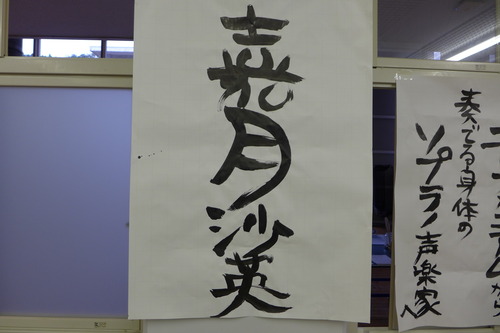 嘉月沙英
から
奏でる身体の
ソプラノ声楽家へ